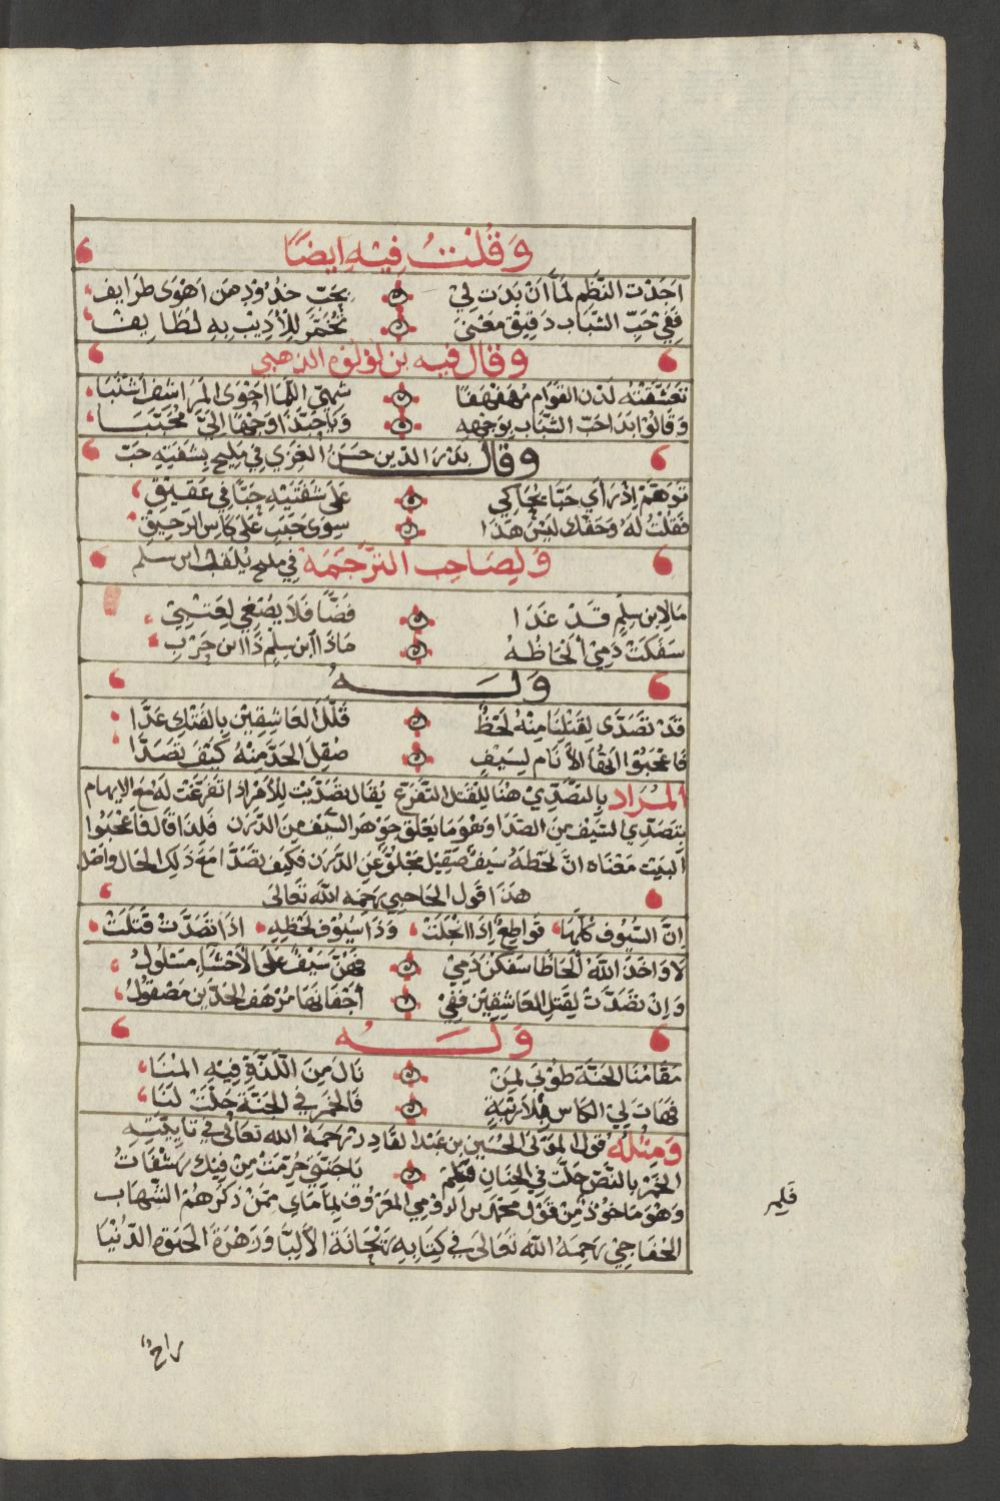 وَقُلْتُ فِيْهِ اَيضًا
اَجَدْتَ النَّظْمَ لَمَّا اَنْ بَدَتْ لِيْ بِحَبّ خُدُوْدِ مَن اَهْوَى طَرَايف
فَفِيْ حَبِّ الشَّبَابِ دَقِيْقُ مَعْنَى تُخَمَّرُ لِلْأَدِيْبِ بِهِ لَطَايِف
وَقَال فيه بن لؤلؤ الذهبي
تَعَشَّقْتُهُ لَدْن القَوَام مُهَفْهَفًا شهيّ اللَّمَا اَحْوَى المَرَاشف اَشْنَبَا
وَقَالُوْا بَدَا حَبّ الشَّبَابِ بِوَجْهِهِ وَيَا حَبَّذَا وَجْهًا اِلَيَّ مُحَبَّبَا
وَقَالَ بَدْرُ الدِّين حَسَن الغِزِي في مَلِيحٍ بِشَفَتِهِ حَبّ
تَوَهَّمَ اِذْ رَأى حَبًّا يُحَاكِي عَلَى شَفَتَيْهِ حَبًّا فِي عَقِيْقِ
فَقُلْتُ لَهُ وَحَقّكَ لَيْسَ هَذَا سِوَى حَبَبٍ عَلَى كَاسِ الرَّحِيْقِ
وَلِصَاحِبِ التَّرْجَمَة في مليح يُلَقَّب ابن سلم
مَا لِابنِ سِلْمٍ قَدْ غَدَا فَضًّا فَلَا يُصْغِي لِعَتْبِيْ
سَفَكَتْ دَمِيْ اَلْحَاظُهُ مَاذَا ابن سِلْمٍ ذَا ابن حَرْبِ
وَلَهُ
قَدْ تَصَدَّى لِقَتْلِنَا مِنْهُ لَحْظُ قَلَّلَ العَاشِقِيْنَ بِالفَتْكِ عَدَّا
فَاعْجَبُوْا اَيُّهَا الأَنَام لِسَيْفٍ صُقِلَ الحَدّ مِنْهُ كَيْفَ تَصَدَّا
المُرَاد بِالتَّصَدِّيْ هُنَا لِلقَتل التَّفَرُّغ يُقَال تَصَدَّيْت لِلأَمْر اِذَا تَفَرَّغْت لَهُ مَعَ الإيهام
بِتَصَدِّي السَّيْف مِنَ الصّدَا وَهْوَ مَا يَعْلُق جَوْهَر السَّيْف مِنَ الدَّرَن فَلِذَا قَالَ فَاعْجَبُوا
البَيْت مَعْنَاه اَنَّ لَحْظَهُ سَيْفٌ صَقِيْل مَجْلُوٌّ عَنِ الدَّرَن فَكَيْفَ تَصَدَّا مَعَ ذَلِكَ الحَال وَاَصْل
هَذَا قَول الحَاجِبي رَحِمَهُ اللّه تَعَالَى
اِنَّ السُّيُوف كُلّهَا قَوَاطِعٌ اِذَا انْجَلَتْ وَذَا سُيُوْف لَحْظِهِ اِذَا تَصَدَّتْ قَتَلَتْ
لَا وَاخَذَ اللّهُ اَلْحَاظًا سَفَكْنَ دَمِيْ فَهُنَّ سَيْفٌ عَلَى الأَحْشَاءِ مَسْلُولُ
وَاِنْ تَصَدَّتْ لِقَتْلِ العَاشِقِيْنَ فَفِيْ اَجْفَانِهَا مُرْهَف الحَدَّيْن مَصْقُولُ
وَلَهُ
مَقَامُنَا الجَنَّة طُوْبَى لِمَنْ نَالَ مِنَ اللَّذَّةِ فِيْهِ المُنَا
فَهَاتَ لِي الكَاس بِلَا رَيْبَةٍ فَالخَمْرُ فِي الجَنَّةِ حَلَّتْ لَنَا
وَمِثْلُهُ قول المولى الحُسَيْن بن عَبْد القَادِر رَحِمَهُ الله تعالى في تايِيَّتِهِ
الخَمْرُ بِالنَّصِّ حَلَّتْ فِي الجِنَانِ فَلِمْ يَا جَنَّتِيْ حُرِّمَتْ مِنْ فِيْكِ رَشْفَاتُ
وَهْوَ مَاخُوْذٌ مِنْ قَوْل مُحَمَّد بن الرُّوْمِي المَعْرُوْف بِمَامَاي مِمَّنْ ذَكَرَهُمْ الشَّهَاب
الخَفَاجِيْ رَحِمَهُ اللّه تَعَالَى فِي كِتَابِهِ رَيْحَانَة الأَلِبَّا وَزَهْرَةُ الحَيَوةِ الدُّنْيَا
فَلِمْ
راح